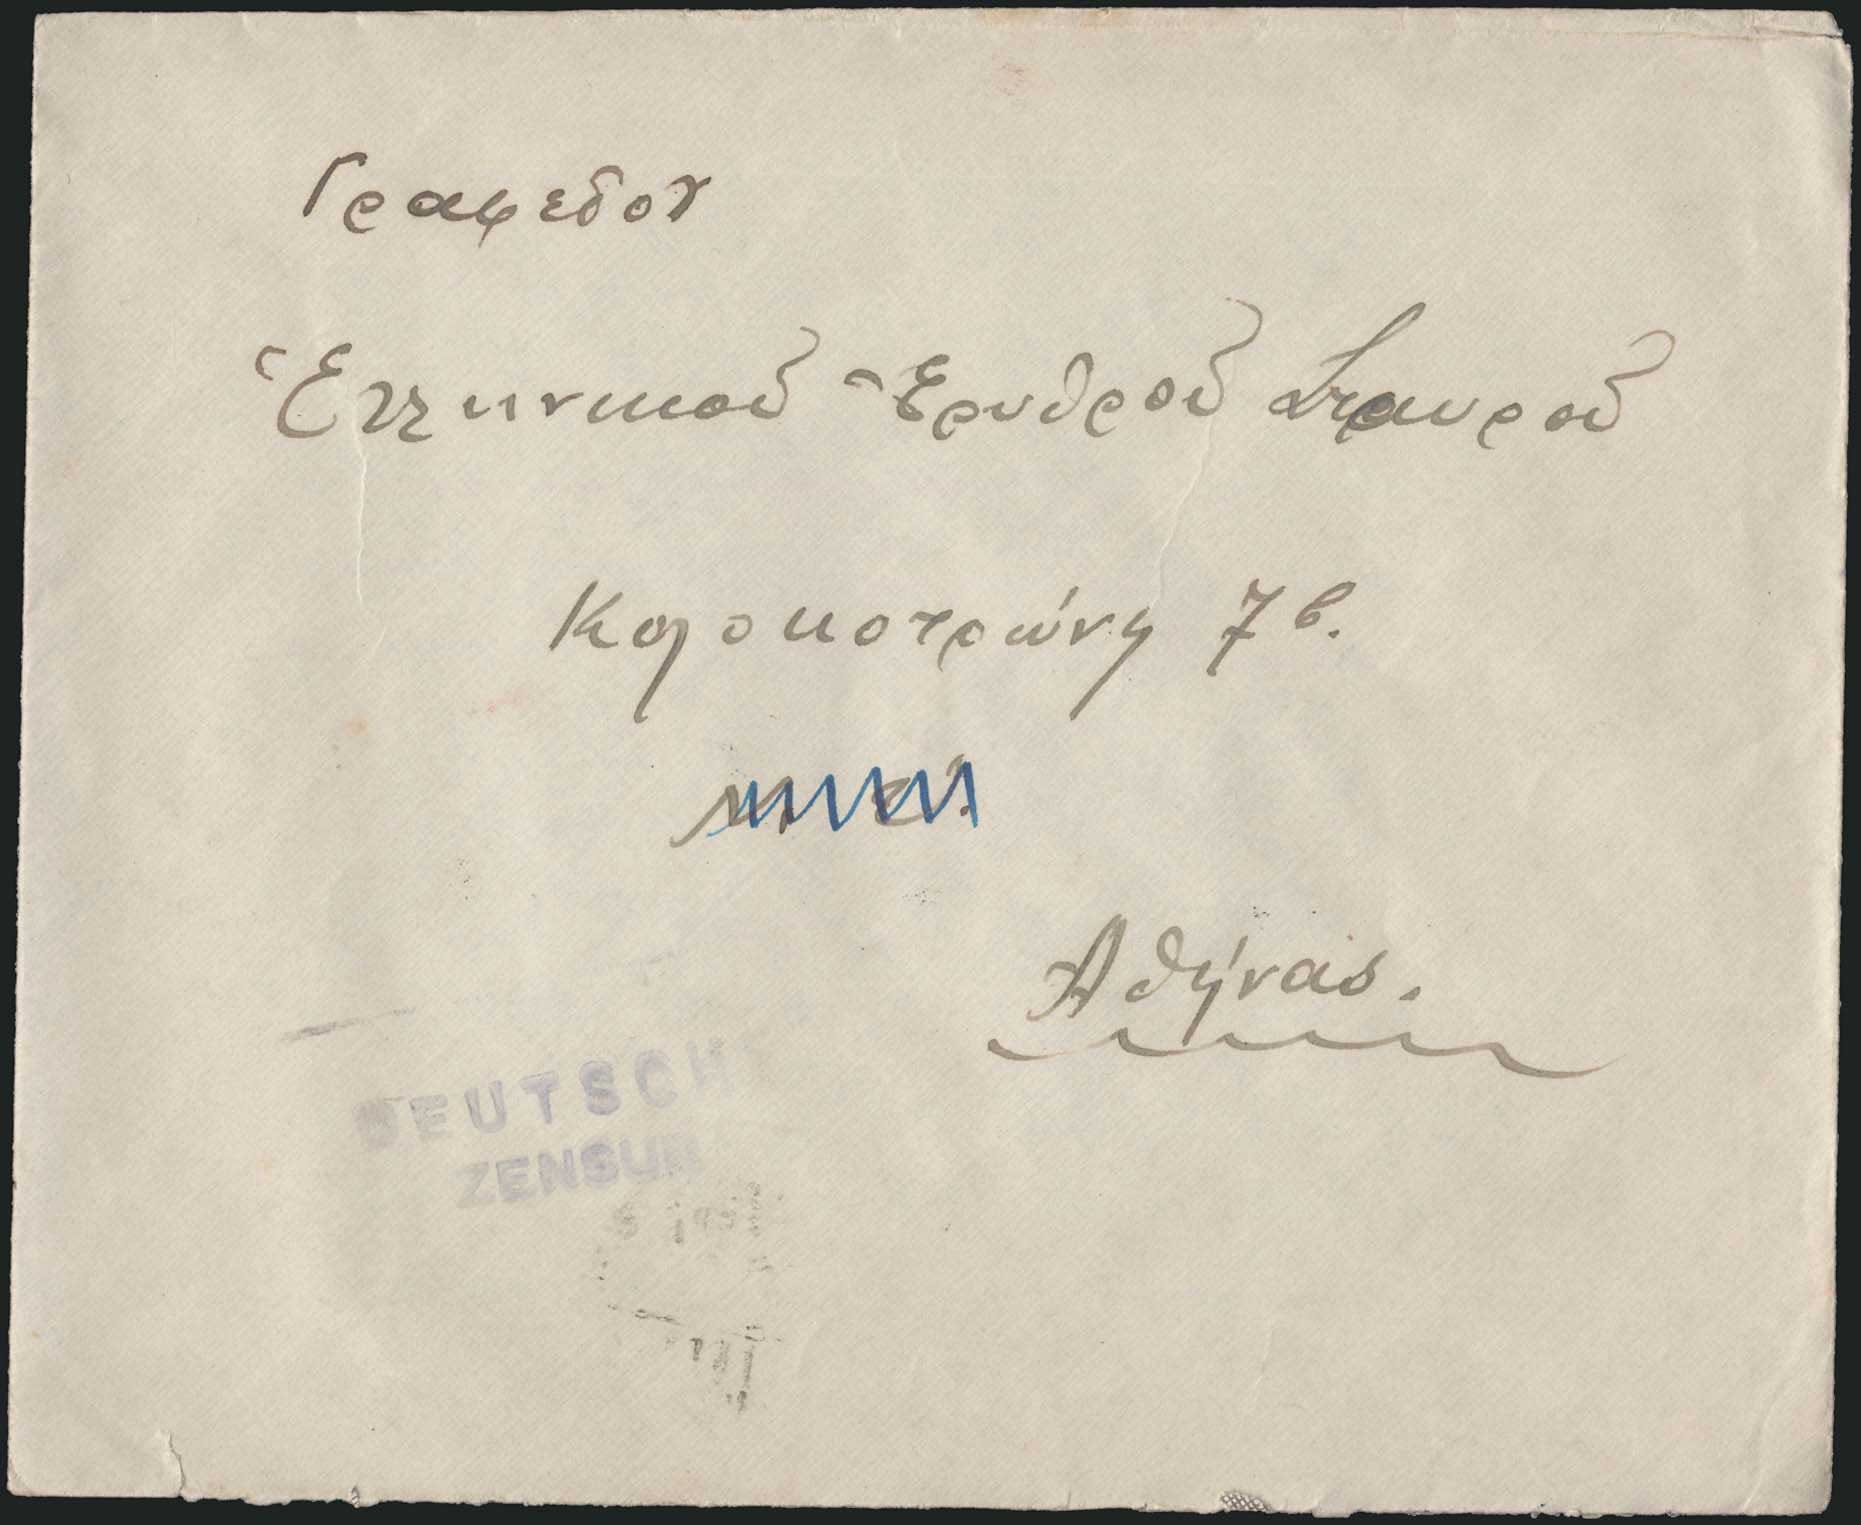 Γραφεδον
Ἑλληνικοῦ Ἐρυθροῦ Σταυροῦ
Κολοκοτρώνη 7β.
Ἀθήνας.
DEUTSCH
ZENSUR